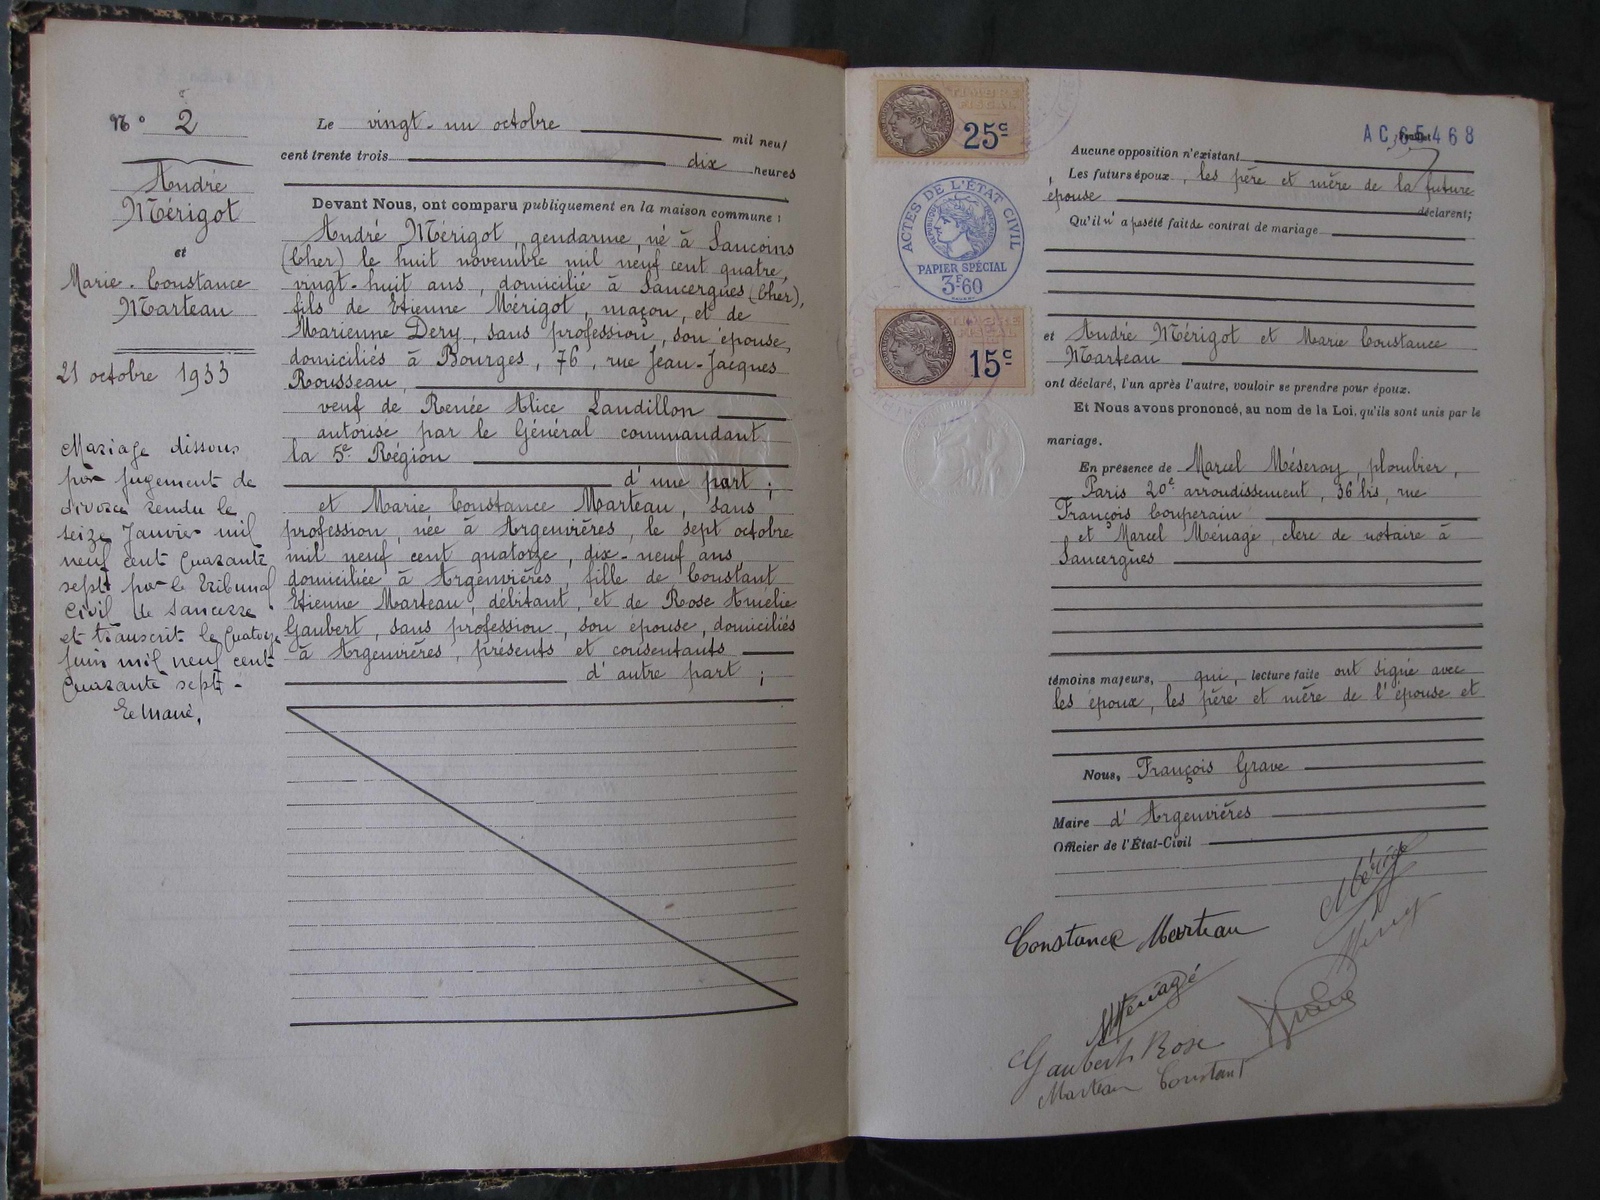 N° 2
André
Mérigot
et
Marie-Constance
Marteau
21 octobre 1933
Mariage dissous
par jugement de
divorce rendu le
seize Janvier mil
neuf cent quarante
sept par le tribunal
civil de Sancerre
et transcrit le quatorze
juin mil neuf cent
quarante sept.
Le Maire,
Le vingt-un octobre mil neuf
cent trente trois dix heures
Devant Nous, ont comparu publiquement en la maison commune :
André Mérigot, gendarme, né à Sancoins
(Cher) le huit novembre mil neuf cent quatre,
vingt-huit ans, domicilié à Sancergues (Cher),
fils de Etienne Mérigot, maçon, et de
Marienne Dery, sans profession, son épouse,
domiciliés à Bourges, 76, rue Jean-Jacques
Rousseau,
veuf de Renée Alice Landillon
autorisé par le Général commandant
la 5e Région
d'une part ;
et Marie Constance Marteau, sans
profession, née à Argenvières, le sept octobre
mil neuf cent quatorze, dix-neuf ans
domiciliée à Argenvières, fille de Constant
Etienne Marteau, débitant, et de Rose Amélie
Gaubert, sans profession, son épouse, domiciliés
à Argenvières, présents et consentants
d'autre part ;
TIMBRE
FISCAL
25c
ACTES DE L'ÉTAT CIVIL
PAPIER SPÉCIAL
3F60
15c
AC 65468
Aucune opposition n'existant
Les futurs époux, les père et mère de la future
épouse déclarent;
Qu'il n'a pas été fait de contrat de mariage
et André Mérigot et Marie Constance
Marteau
ont déclaré, l'un après l'autre, vouloir se prendre pour époux.
Et Nous avons prononcé, au nom de la Loi, qu'ils sont unis par le
mariage.
En présence de Marcel Méseray, plombier,
Paris 20e arrondissement, 36 bis, rue
François Couperain
et Marcel Ménagé, clerc de notaire à
Sancergues
témoins majeurs, qui, lecture faite ont signé avec
les époux, les père et mère de l'épouse et
Nous, François Grave
Maire d'Argenvières
Officier de l'État-Civil
Constance Marteau
Mérigot
Ménagé
Gaubert Rose
Marteau Constant